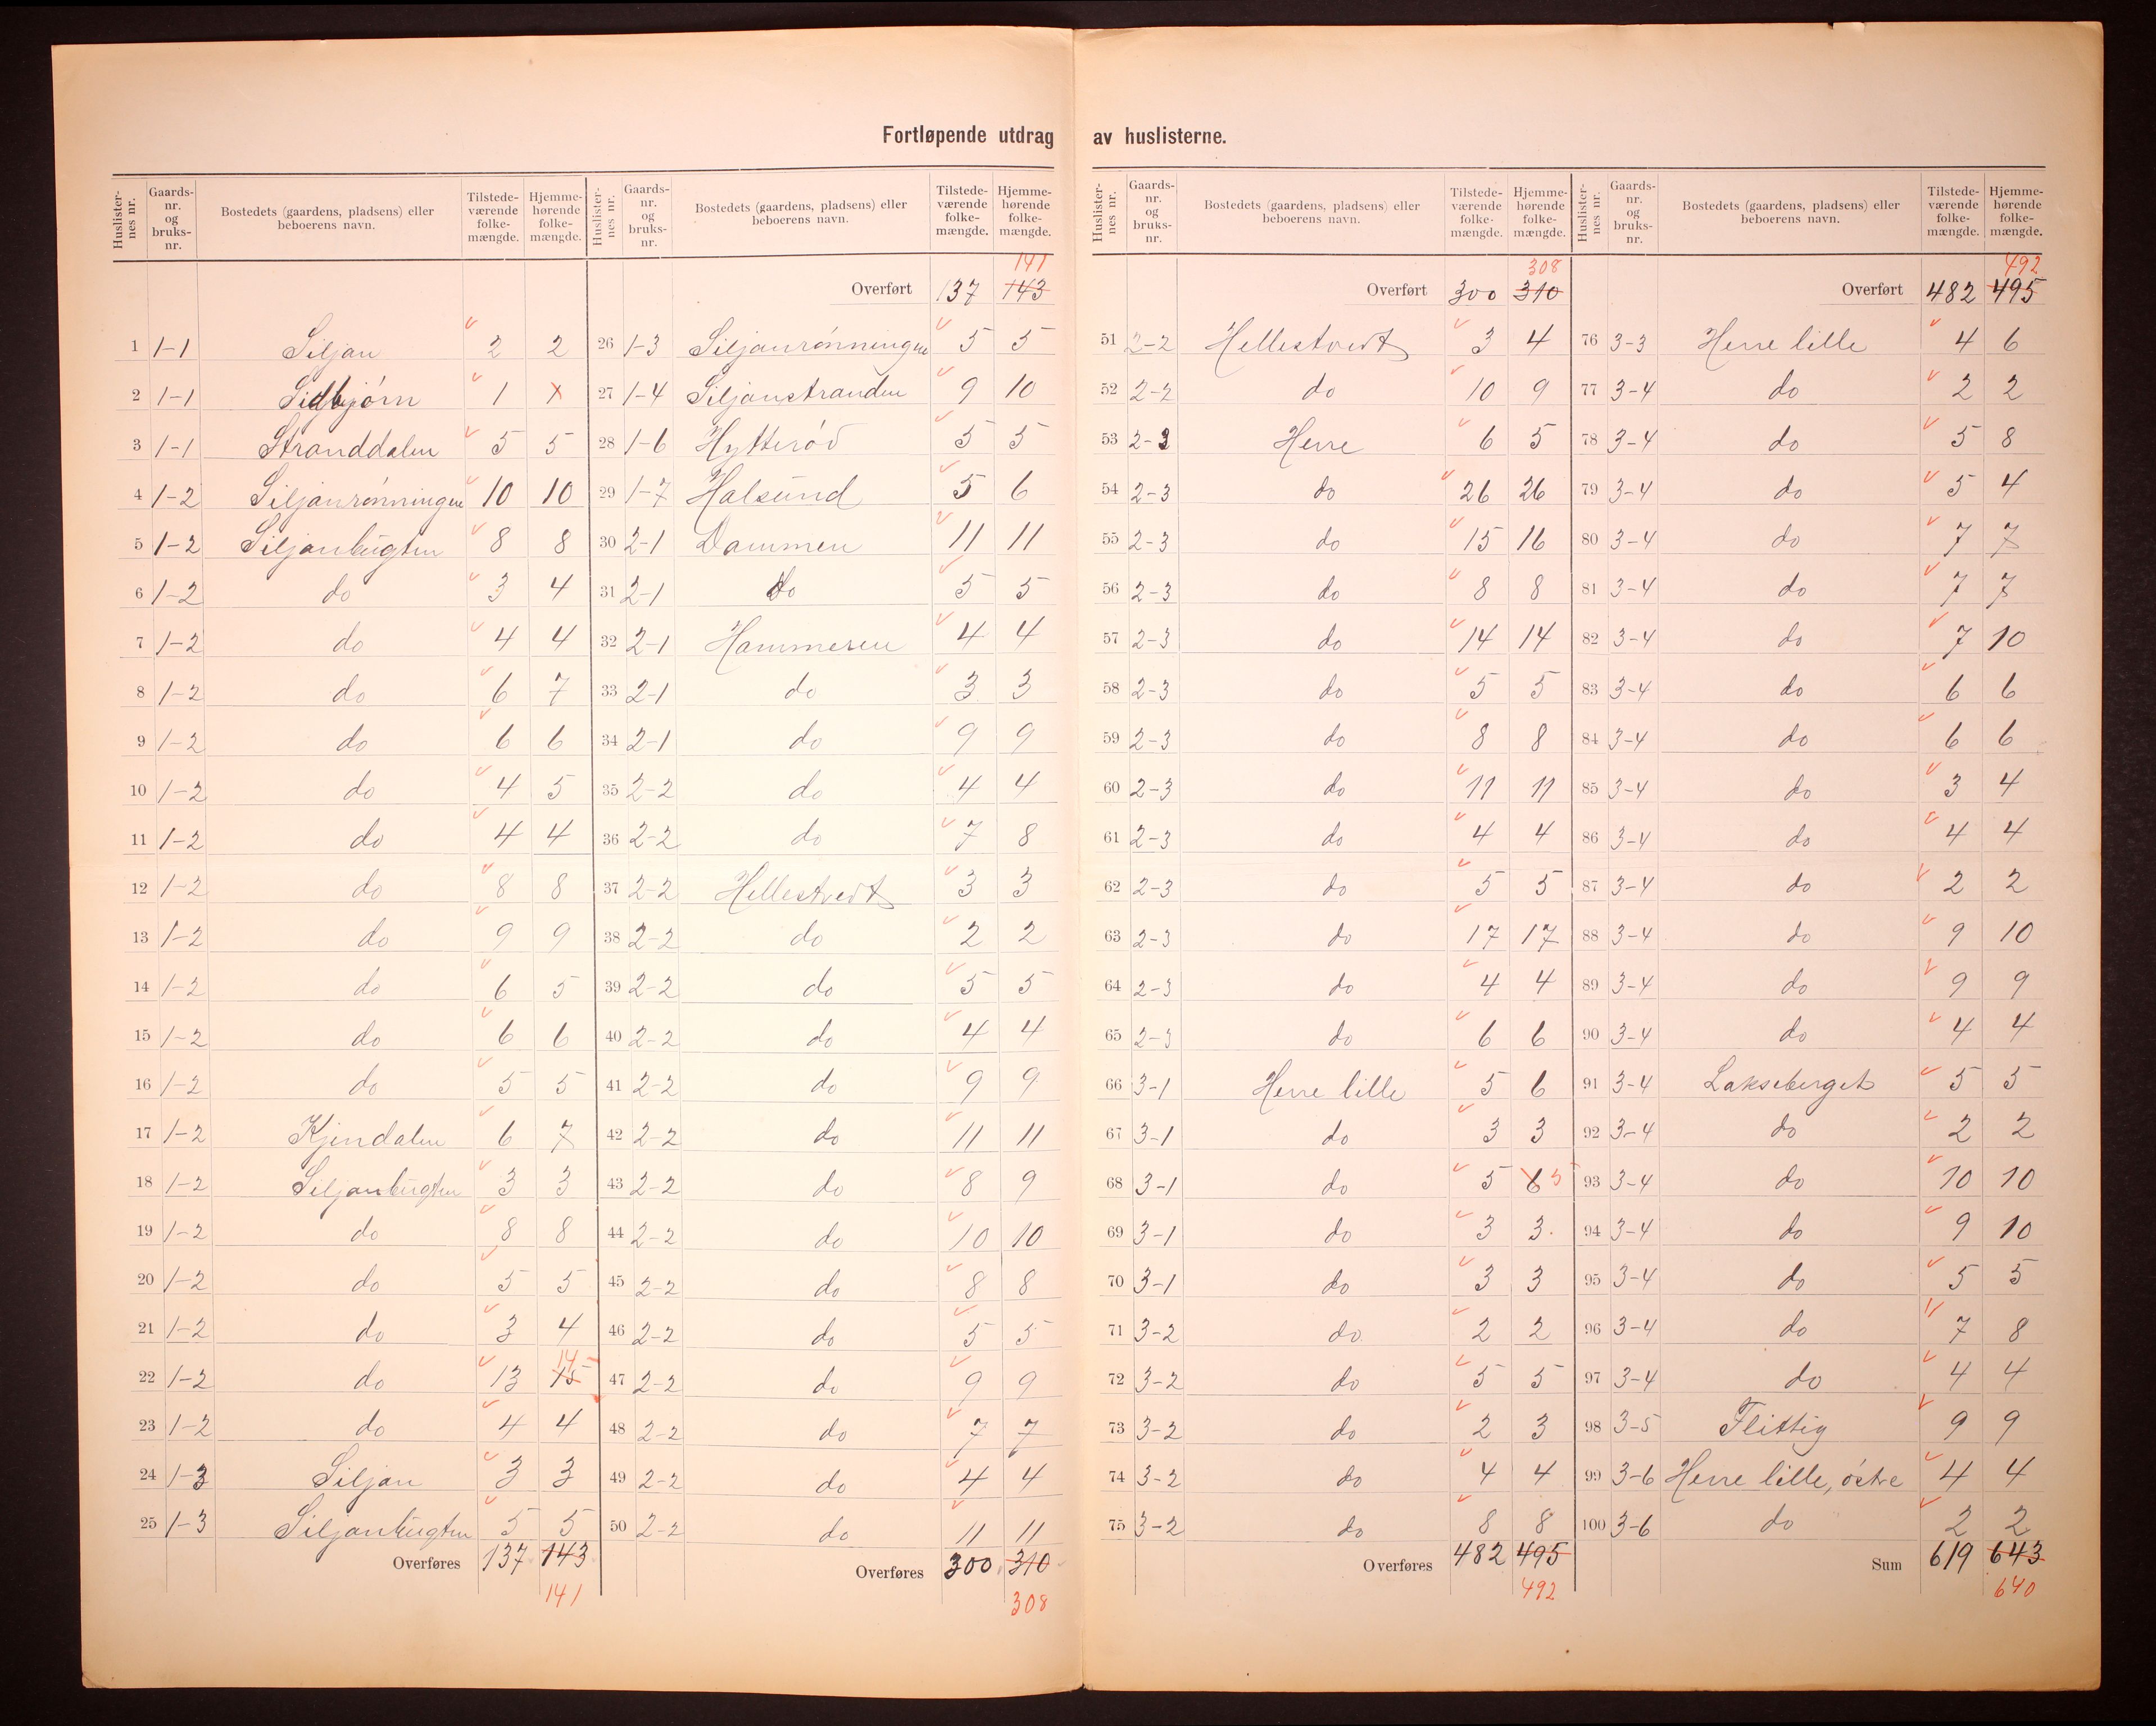 Fortløpende utdrag av huslisterne.
Huslisternes nr. Gaards-nr. og bruks-nr. Bostedets (gaardens, pladsens) eller beboerens navn. Tilstedeværende folkemængde. Hjemmehørende folkemængde.
1 1-1 Siljan 2 2
2 1-1 Sidbjörn 1 x
3 1-1 Stranddalen 5 5
4 1-2 Siljanrönningen 10 10
5 1-2 Siljanbugten 8 8
6 1-2 do 3 4
7 1-2 do 4 4
8 1-2 do 6 7
9 1-2 do 6 6
10 1-2 do 4 5
11 1-2 do 4 4
12 1-2 do 8 8
13 1-2 do 9 9
14 1-2 do 6 5
15 1-2 do 6 6
16 1-2 do 5 5
17 1-2 Kjendalen 6 7
18 1-2 Siljanbugten 3 3
19 1-2 do 8 8
20 1-2 do 5 5
21 1-2 do 3 4
22 1-2 do 13 15 14
23 1-2 do 4 4
24 1-3 Siljan 3 3
25 1-3 Siljanbugten 5 5
Overføres 137 143
141
Huslisternes nr. Gaards-nr. og bruks-nr. Bostedets (gaardens, pladsens) eller beboerens navn. Tilstedeværende folkemængde. Hjemmehørende folkemængde.
141
Overført 137 143
26 1-3 Siljanrönningen 5 5
27 1-4 Siljanstranden 9 10
28 1-6 Hytteröd 5 5
29 1-7 Halsund 5 6
30 2-1 Dammen 11 11
31 2-1 do 5 5
32 2-1 Hammeren 4 4
33 2-1 do 3 3
34 2-1 do 9 9
35 2-2 do 4 4
36 2-2 do 7 8
37 2-2 Hellestvedt 3 3
38 2-2 do 2 2
39 2-2 do 5 5
40 2-2 do 4 4
41 2-2 do 9 9
42 2-2 do 11 11
43 2-2 do 8 9
44 2-2 do 10 10
45 2-2 do 8 8
46 2-2 do 5 5
47 2-2 do 9 9
48 2-2 do 7 7
49 2-2 do 4 4
50 2-2 do 11 11
Overføres 300 310
308
Huslisternes nr. Gaards-nr. og bruks-nr. Bostedets (gaardens, pladsens) eller beboerens navn. Tilstedeværende folkemængde. Hjemmehørende folkemængde.
308
Overført 300 310
51 2-2 Hellestvedt 3 4
52 2-2 do 10 9
53 2-3 Herre 6 5
54 2-3 do 26 26
55 2-3 do 15 16
56 2-3 do 8 8
57 2-3 do 14 14
58 2-3 do 5 5
59 2-3 do 8 8
60 2-3 do 11 11
61 2-3 do 4 4
62 2-3 do 5 5
63 2-3 do 17 17
64 2-3 do 4 4
65 2-3 do 6 6
66 3-1 Herre lille 5 6
67 3-1 do 3 3
68 3-1 do 5 6 5
69 3-1 do 3 3
70 3-1 do 3 3
71 3-2 do 2 2
72 3-2 do 5 5
73 3-2 do 2 3
74 3-2 do 4 4
75 3-2 do 8 8
Overføres 482 495
492
Huslisternes nr. Gaards-nr. og bruks-nr. Bostedets (gaardens, pladsens) eller beboerens navn. Tilstedeværende folkemængde. Hjemmehørende folkemængde.
492
Overført 482 495
76 3-3 Herre lille 4 6
77 3-4 do 2 2
78 3-4 do 5 8
79 3-4 do 5 4
80 3-4 do 7 7
81 3-4 do 7 7
82 3-4 do 7 10
83 3-4 do 6 6
84 3-4 do 6 6
85 3-4 do 3 4
86 3-4 do 4 4
87 3-4 do 2 2
88 3-4 do 9 10
89 3-4 do 9 9
90 3-4 do 4 4
91 3-4 Lakseberget 5 5
92 3-4 do 2 2
93 3-4 do 10 10
94 3-4 do 9 10
95 3-4 do 5 5
96 3-4 do 7 8
97 3-4 do 4 4
98 3-5 Flittig 9 9
99 3-6 Herre lille, östre 4 4
100 3-6 do 2 2
Sum 619 643
640